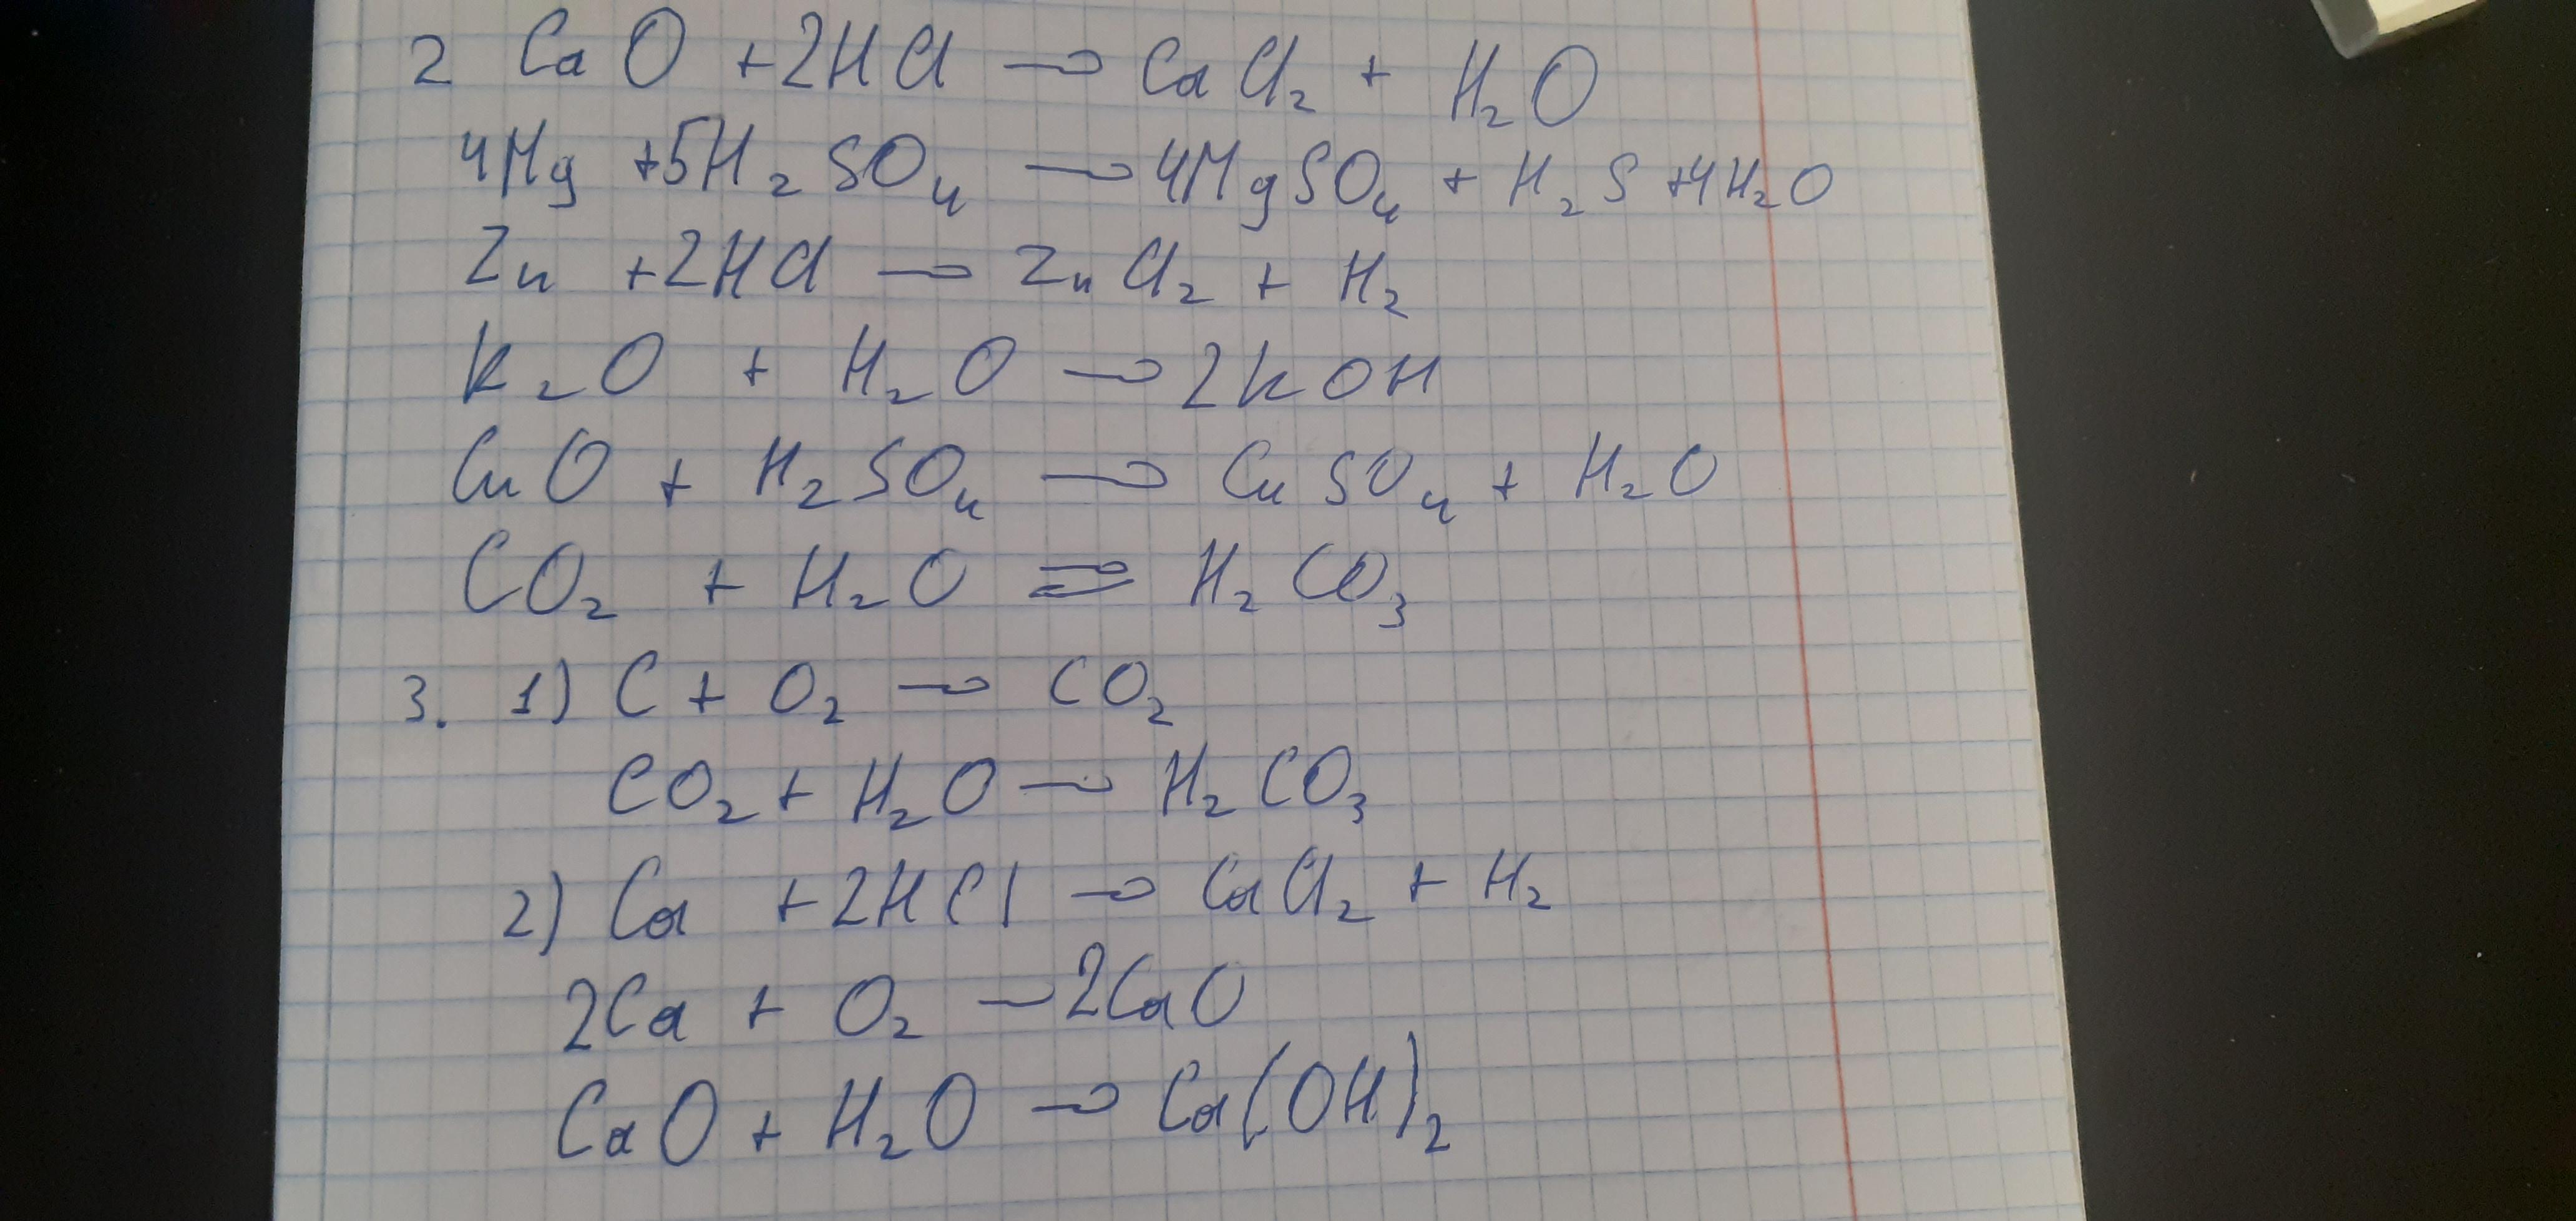 2 CaO +2HCl → CaCl₂ + H₂O
4Mg +5H₂SO₄ → 4MgSO₄ + H₂S +4H₂O
Zn +2HCl → ZnCl₂ + H₂
K₂O + H₂O → 2KOH
CuO + H₂SO₄ → CuSO₄ + H₂O
CO₂ + H₂O ⇄ H₂CO₃
3. 1) C + O₂ → CO₂
CO₂ + H₂O → H₂CO₃
2) Ca +2HCl → CaCl₂ + H₂
2Ca + O₂ → 2CaO
CaO + H₂O → Ca(OH)₂